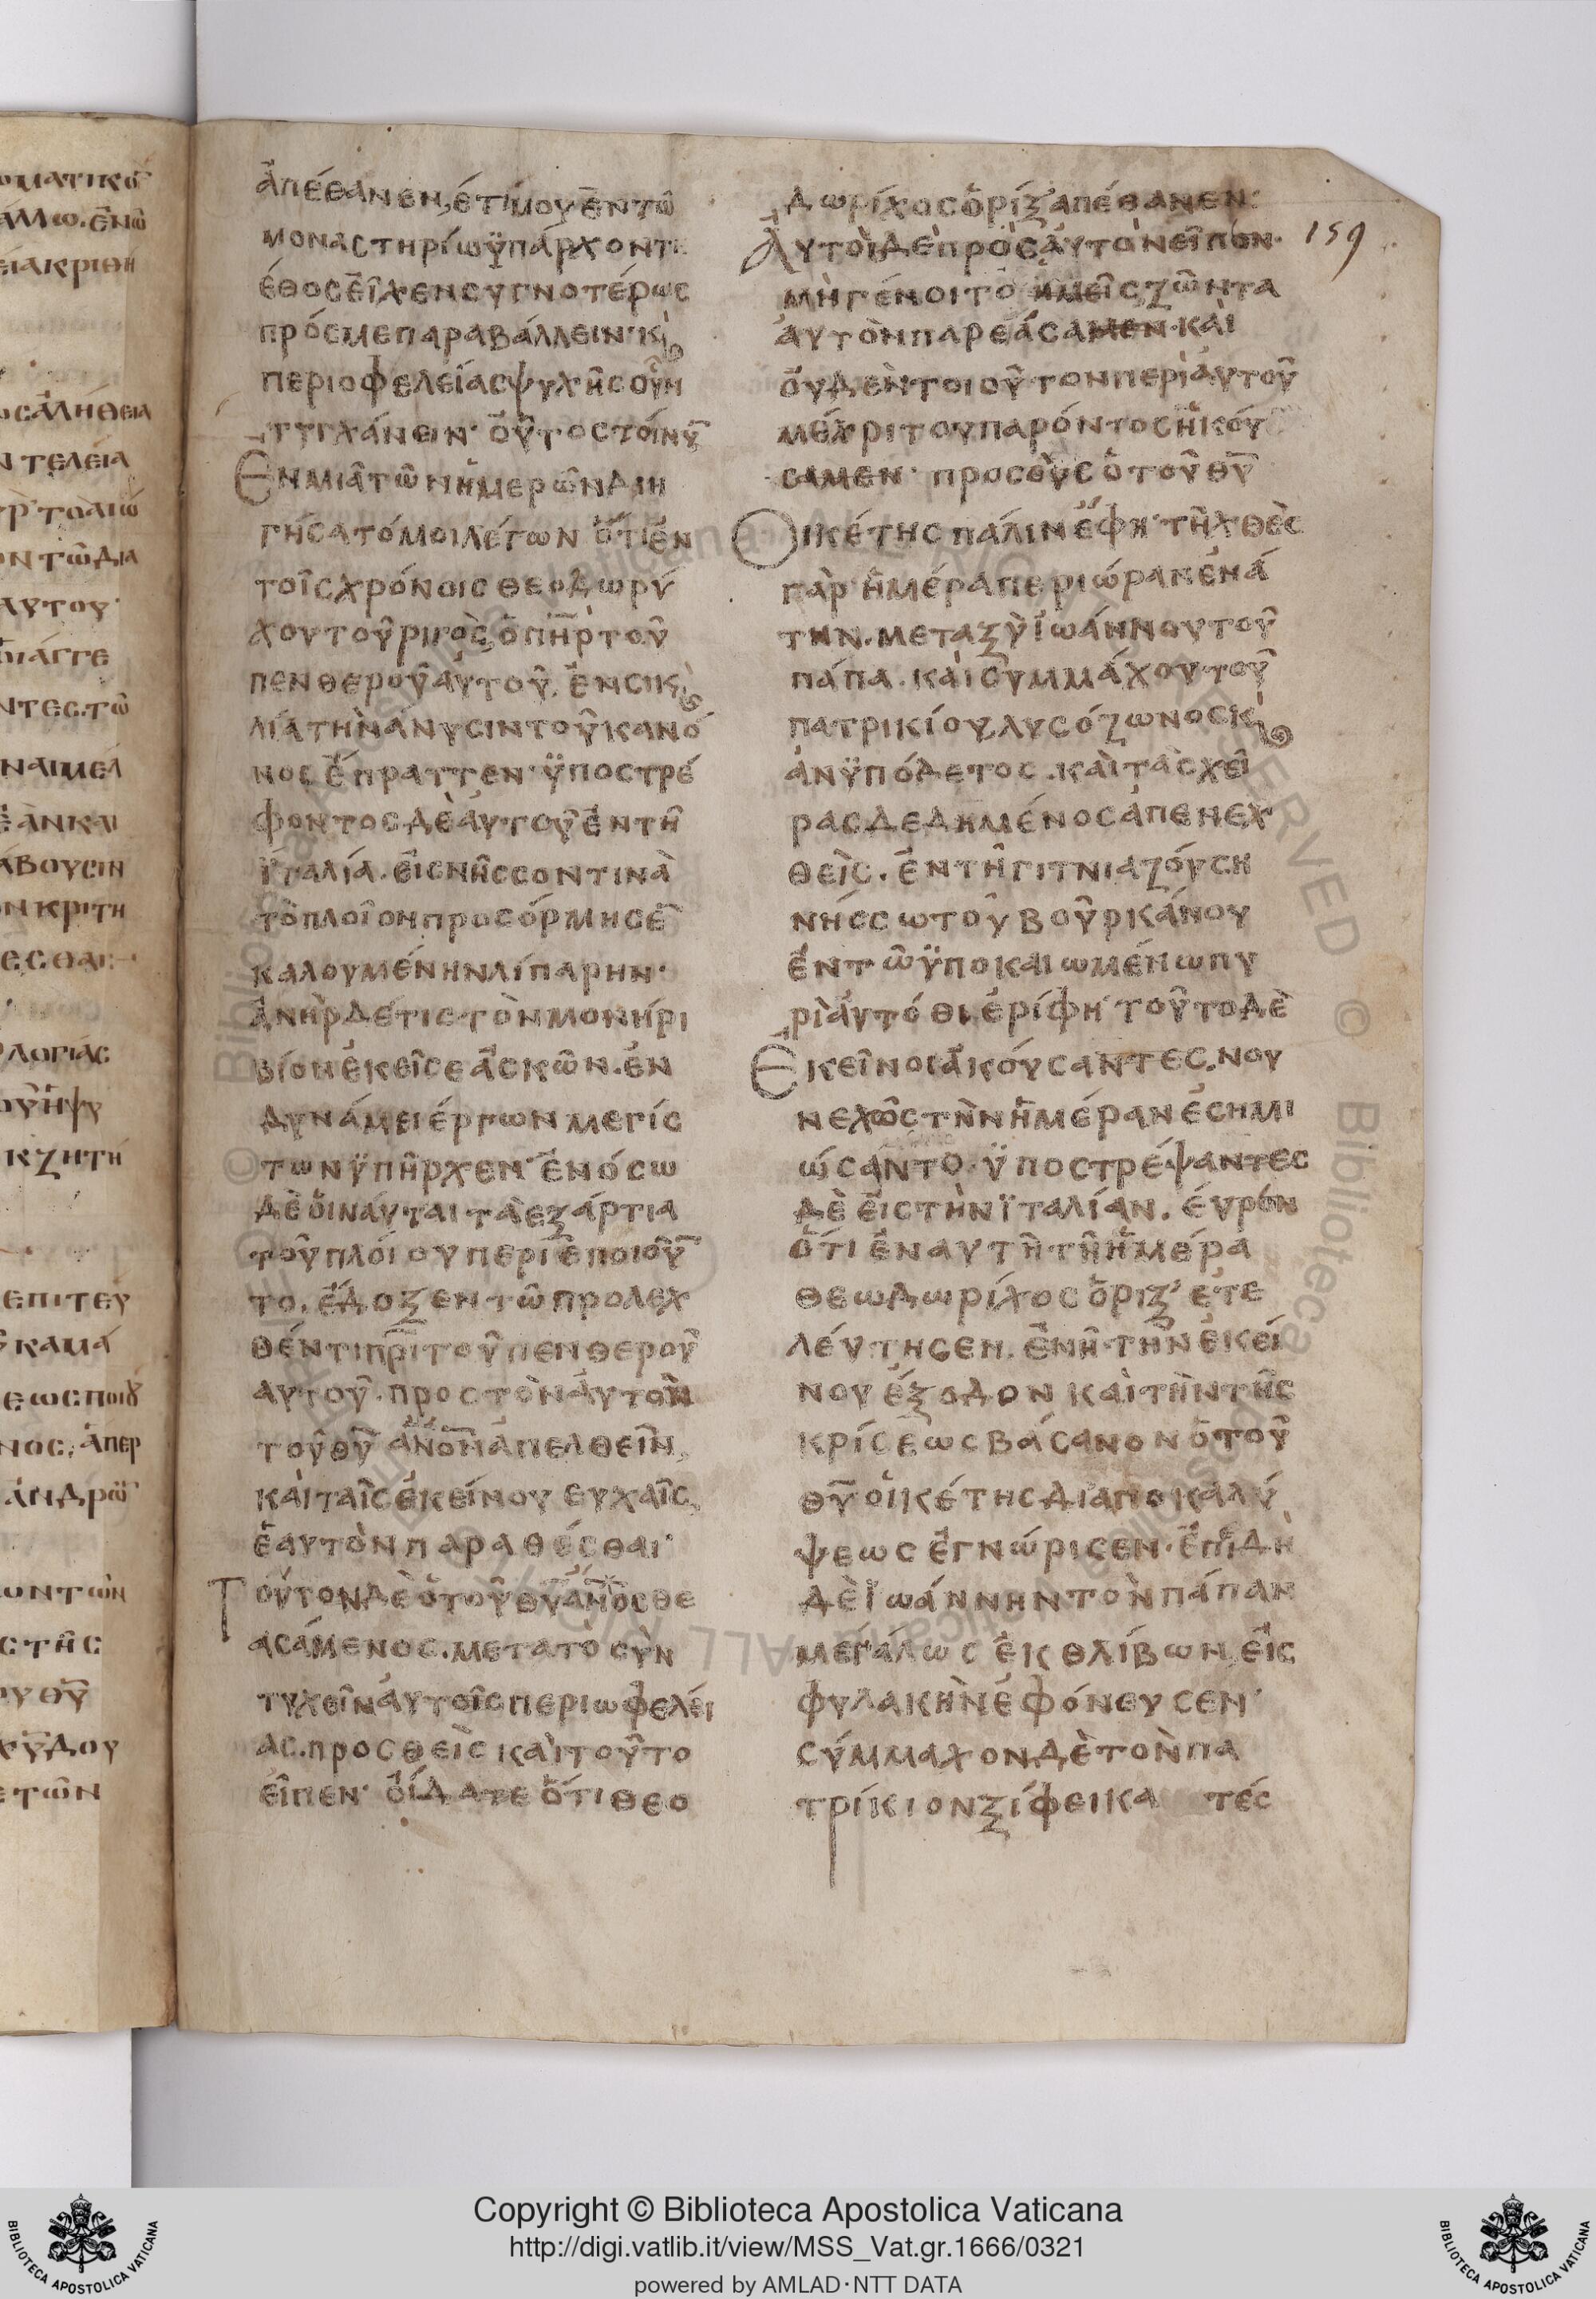 ἀπέθανεν, ἔτι μου ἐν τῶ
μοναστηρίω ϋπάρχοντ
ἔθος εἶχεν συγνοτέρως
πρός με παραβάλλειν· κ
περι οφελείας ψυχῆς συν
τυγχάνειν· οὗτος τοίνυ
Ἐν μιᾶ τῶν ἡμερῶν διη
γήσατό μοι λέγων ὅτι ἐν
τοῖς χρόνοις θεοδωρύ
χου τοῦ ριγὸς ὁ πηρ τοῦ
πενθεροῦ αὐτοῦ. ἐν σικ
λία τὴν ἄνυσιν τοῦ κανό
νος ἔπραττεν· ϋποστρέ
φοντος δὲ αὐτοῦ ἐν τῆ
ϊταλία. εἰς νῆσσον τινὰ
τὸ πλοῖον προσόρμησε
καλουμένην λίπαρην·
ἀνὴρ δέ τις τὸν μονήρι
βίον ἐκεῖσε ἀσκῶν. ἐν
δυνάμει ἔργων μεγίσ
των ϋπῆρχεν· ἐν ὅσω
δὲ οἱ ναύται τὰ ἐξάρτια
τοῦ πλοίου περιεποιοῦ
το. ἔδοξεν τῶ προλεχ
θέντι πρι τοῦ πενθεροῦ
αυτοῦ. προς τὸν αὐτὸν
τοῦ θυ ανον ἀπελθεῖν,
καὶ ταῖς ἐκείνου ευχαῖς,
ἑαυτὸν παραθέσθαι·
Τοῦτον δὲ ὁ τοῦ θυ ανος θε
ασάμενος. μετα τὸ συν
τυχεῖν αὐτοῖς περι ωφελεί
ας. προσθεὶς καὶ τοῦτο
εἶπεν· οἴδατε ὅτι θεο
δωρίχος ὁ ρίξ ἀπέθανεν·
Ἀυτοὶ δὲ πρὸς αὐτὸν εἶπον·
μὴ γένοιτο ἡμεῖς ζῶντα
ἀυτὸν παρεάσαμεν· καὶ
οὐδὲν τοιοῦτον περὶ ἀυτοῦ
μέχρι του παρόντος ἠκού
σαμεν· προς οὓς ὁ τοῦ θυ
Οἰκέτης πάλιν ἔφη· τῆ χθὲς
γὰρ ἡμέρα περι ώραν ἐνά
την. μεταξὺ ϊωάννου τοῦ
πάπα. καὶ συμμάχου τοῦ
πατρικίου, λυσόζωνος κ
ἀνϋπόδετος. καὶ τὰς χεῖ
ρας δεδημένος ἀπενεχ
θεὶς. ἐν τῆ γιτνιαζούση
νήσσω τοῦ βουρκάνου
ἐν τῶ ϋποκαιωμένω πυ
ρὶ ἀυτόθι ἐρίφη· τοῦτο δὲ
Ἐκεῖνοι ἀκούσαντες. νου
νεχῶς τὴν ἡμέραν ἐσημι
ώσαντο. ϋποστρέψαντες
δὲ εἰς τὴν ϊταλίαν. εὑρον
ὅτι ἐν αυτῆ τῆ ἡμέρα
θεωδωρίχος ὁ ριξ ἐτε
λεύτησεν. ἐν ἧ τὴν ἐκεί
νου ἔξοδον καὶ τὴν τῆς
κρίσεως βάσανον ὁ τοῦ
θυ οἰκέτης δι αποκαλύ
ψεως ἐγνώρισεν. ἐπιδὴ
δὲ ϊωάννην τὸν πάπαν
μεγάλως ἐκθλίβων, εἰς
φυλακὴν ἐφόνευσεν·
σύμμαχον δὲ τὸν πα
τρίκιον ξίφει κα τές
159
Copyright © Biblioteca Apostolica Vaticana
http://digi.vatlib.it/view/MSS_Vat.gr.1666/0321
powered by AMLAD·NTT DATA